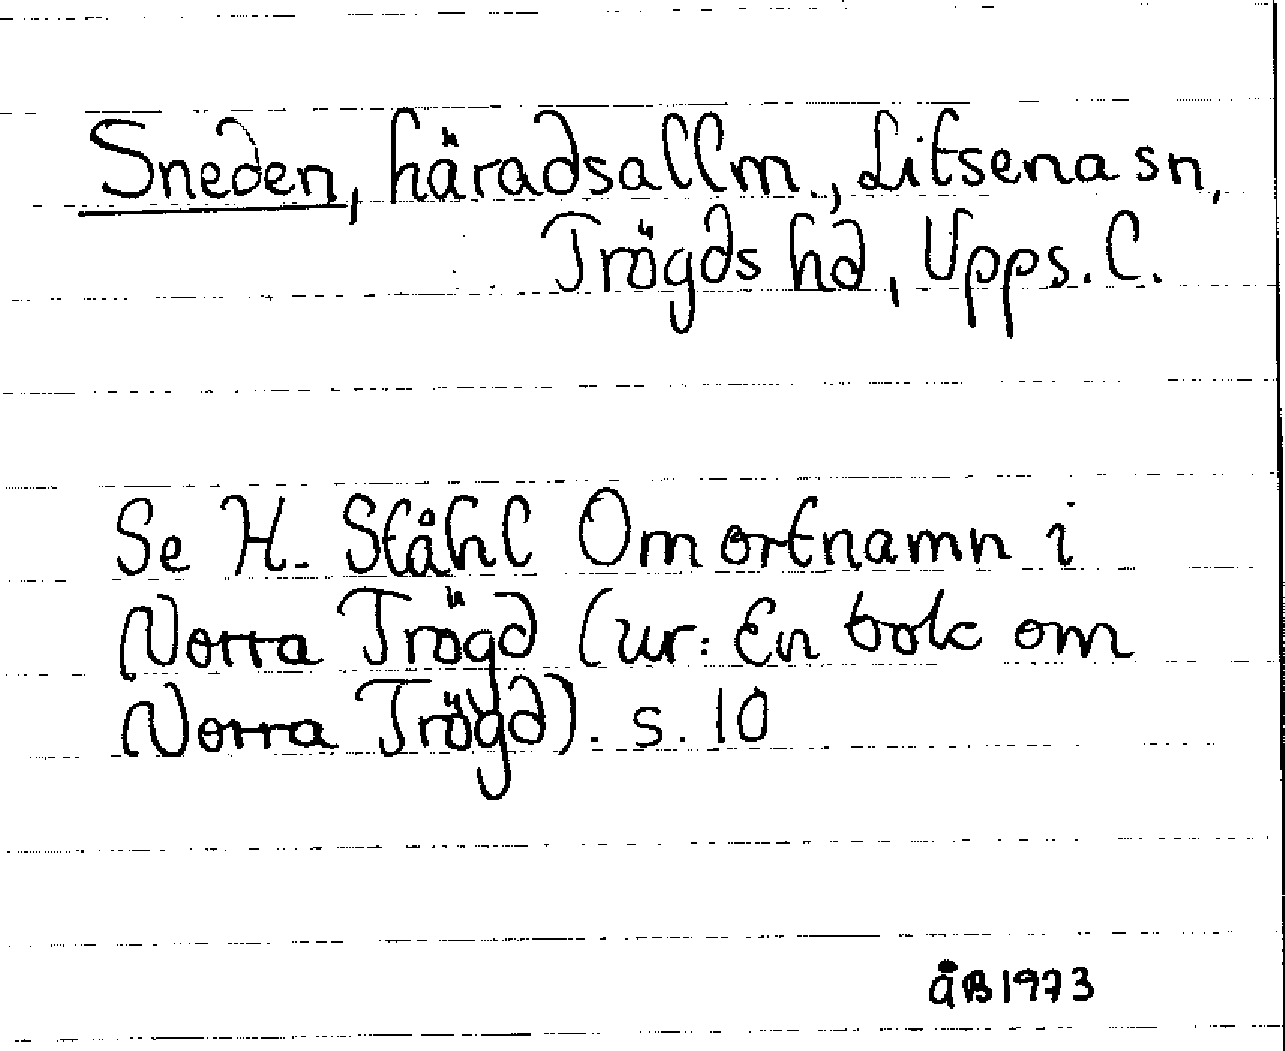 Sneden, häradsallm., Litsena sn,
Trögds hd, Upps. l.
Se H. Ståhl Om ortnamn i
Norra Trögd (ur: En bok om
Norra Trögd). s. 10
ÅB 1973